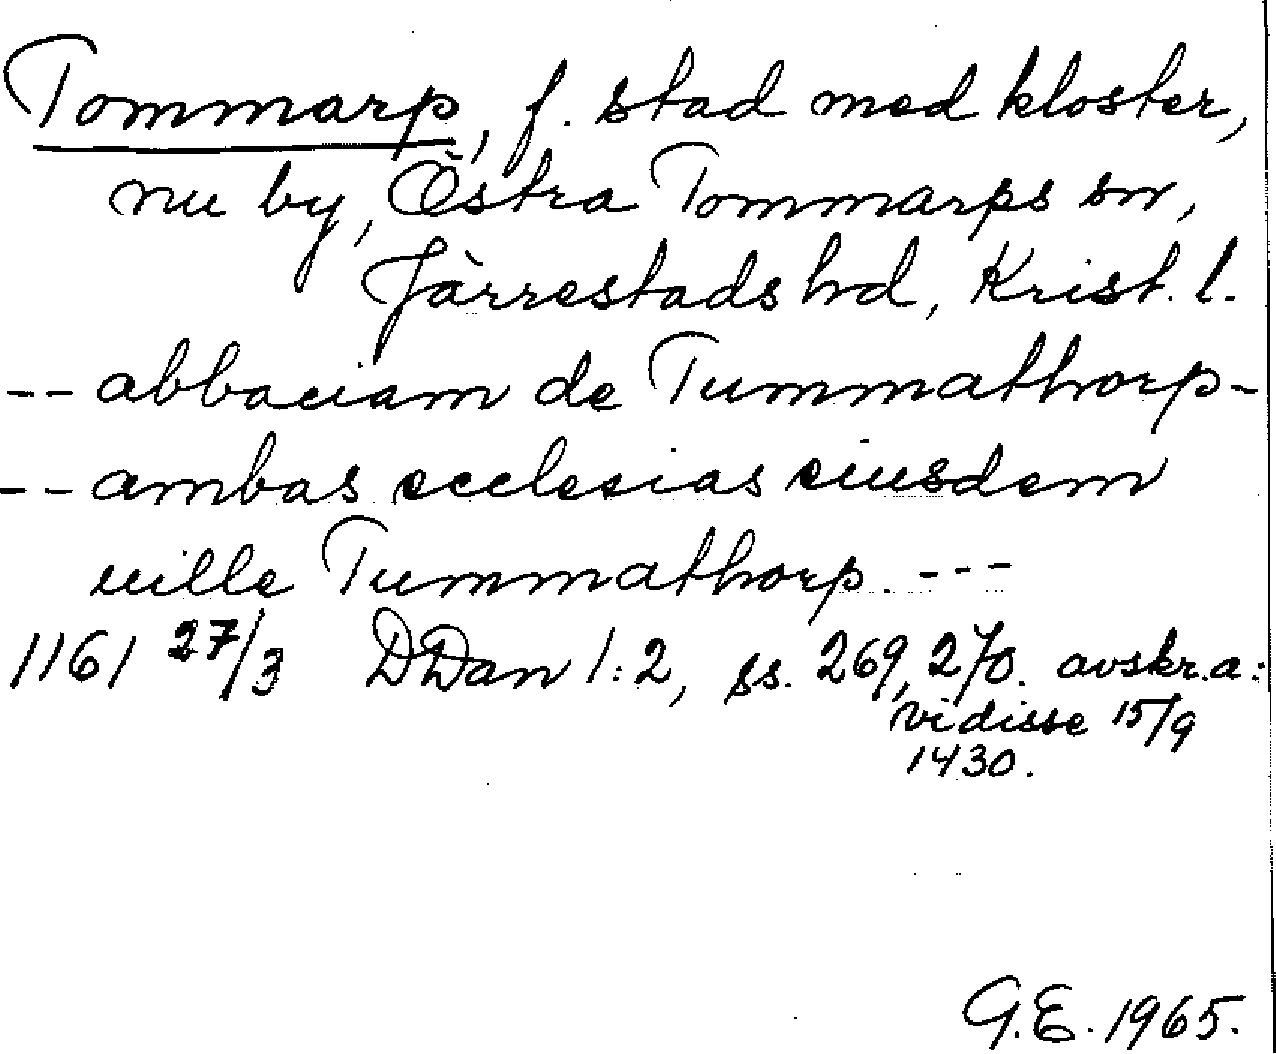 Tommarp, f. stad med kloster,
nu by, Östra Tommarps sn,
Järrestads hd, Krist. l.
-- abbaciam de Tummathorp -
-- ambas ecclesias eiusdem
uille Tummathorp. ---
1161 27/3 DDan 1:2, ss. 269, 270. avskr. a:
vidisse 15/9
1430.
G.E. 1965.